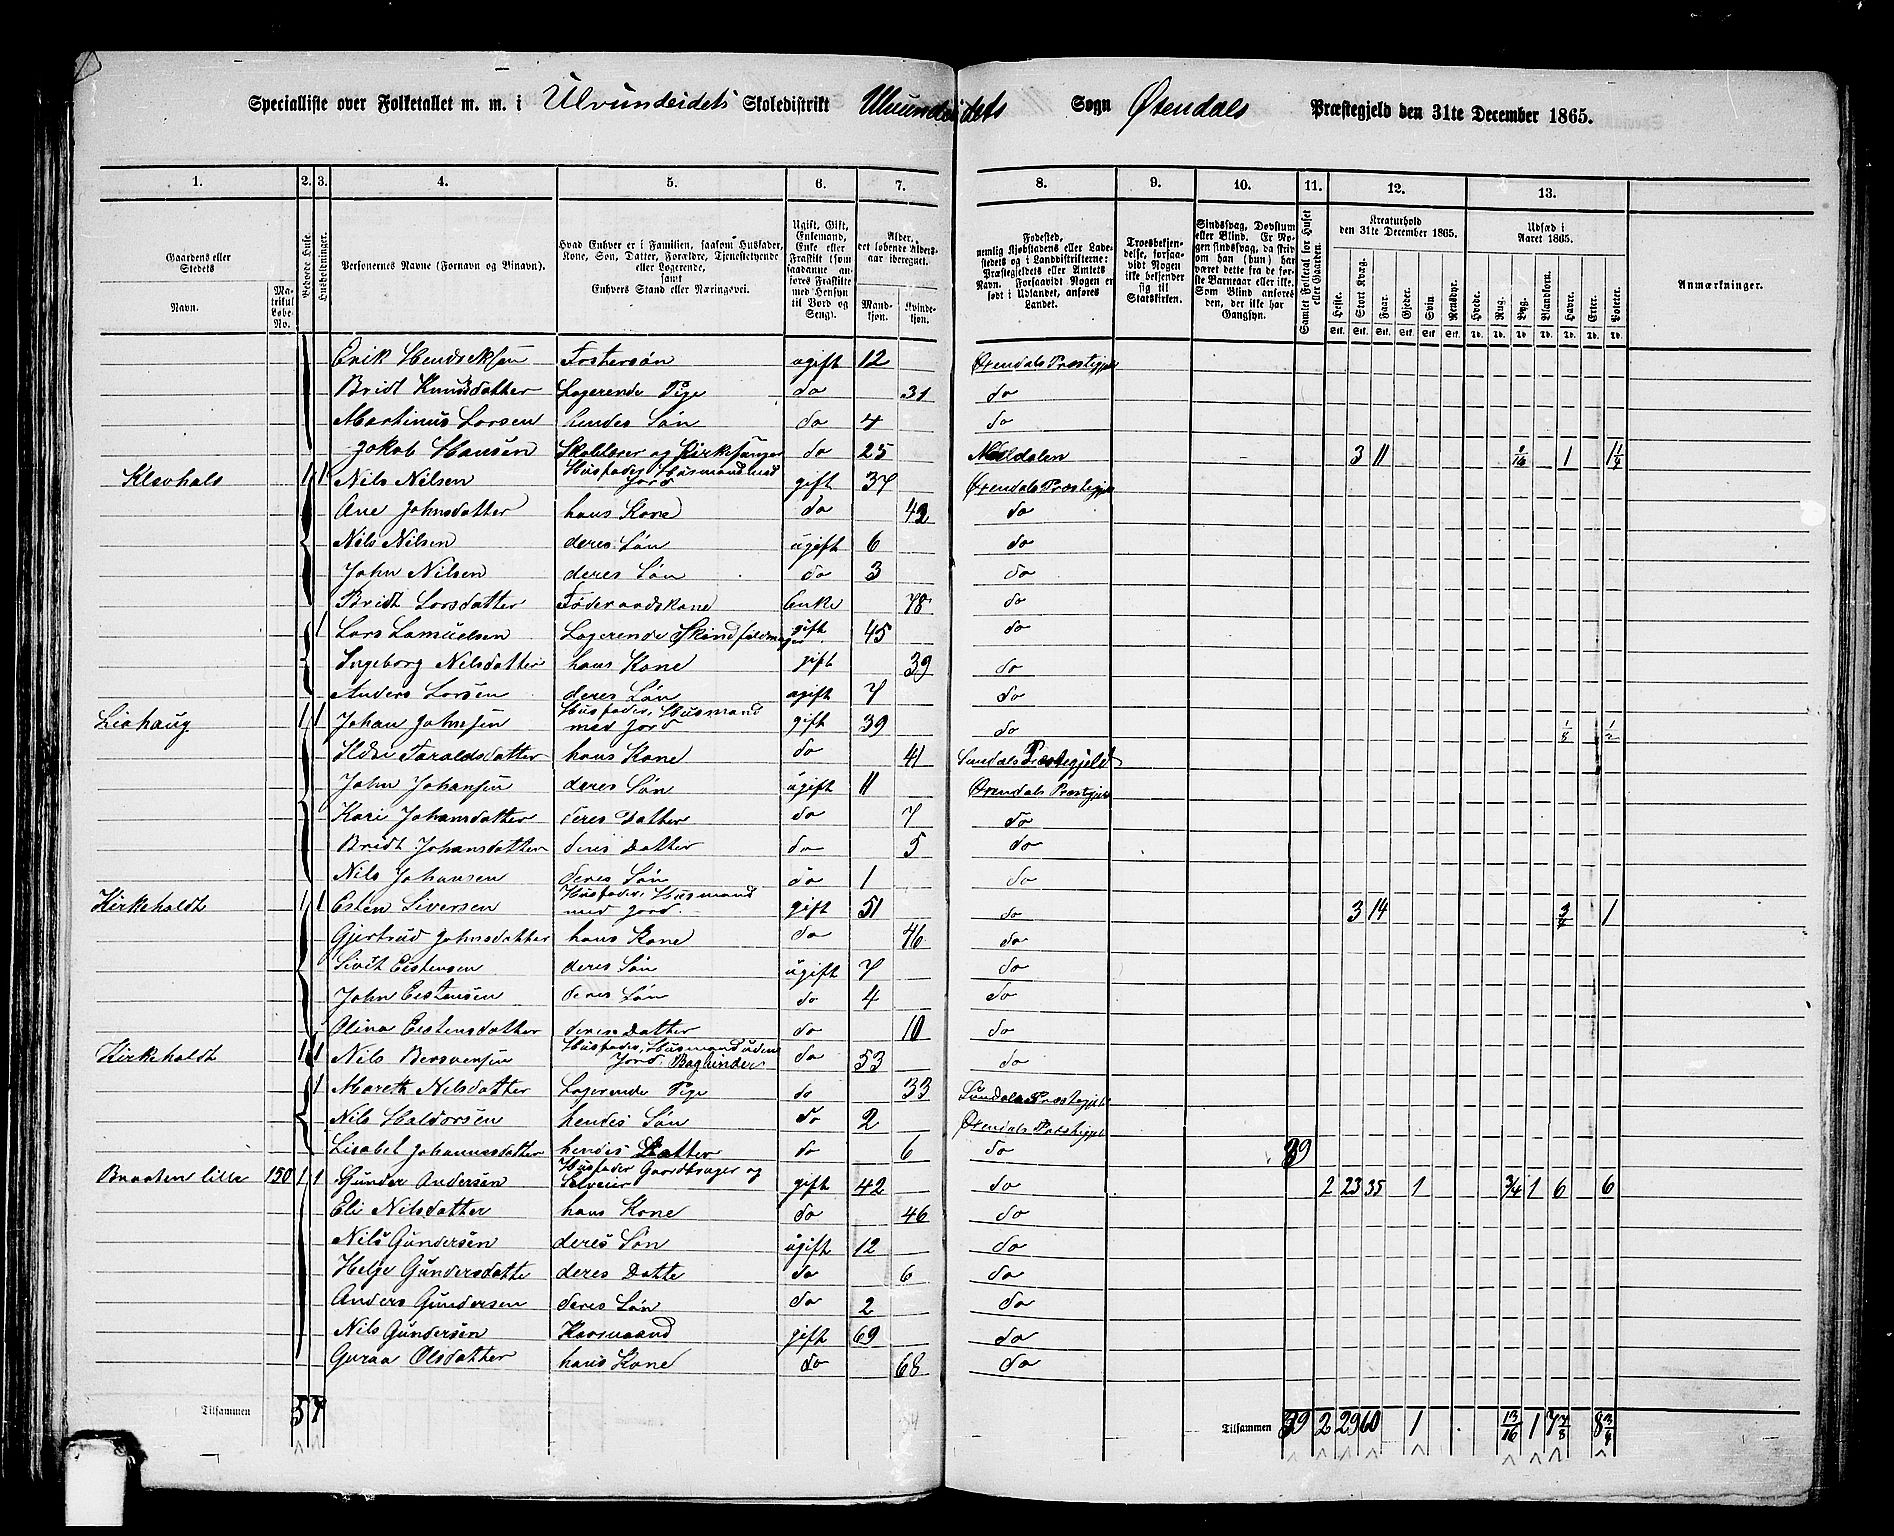 Specialliste over Folketallet m. m. i Ulvundeidets Skoledistrikt Ulvundeidets Sogn Øxendals Præstegjeld den 31te December 1865.
1. 2. 3. 4. 5. 6. 7. 8. 9. 10. 11. 12. 13.
Gaardens eller Stedets Navn.
Matrikul Løbe-No.
Beboede Huse.
Husholdninger.
Personernes Navne (Fornavn og Binavn).
Hvad Enhver er i Familien, saasom Husfader, Kone, Søn, Datter, Forældre, Tjenestetyende eller Logerende, samt Enhvers Stand eller Næringsvei.
Ugift, Gift, Enkemand, Enke eller Fraskilt (som saadanne anføres Fraskilte med Hensyn til Bord og Seng).
Alder, det løbende Alders-aar iberegnet.
Mandkjøn. Kvindekjøn.
Fødested, nemlig Kjøbstadens eller Ladestedets og i Landdistrikterne: Præstegjeldets eller Amtets Navn. Forsaavidt Nogen er født i Udlandet, anføres Landet.
Troesbekjendelse, forsaavidt Nogen ikke bekjender sig til Statskirken.
Sindssvag, Døvstum eller Blind. Er Nogen sindssvag, da skrives om han (hun) har været dette fra de første Barneaar eller ikke. Som Blind anføres den, der ikke har Gangsyn.
Samlet Folketal for Huset eller Gaarden.
Kreaturhold den 31te December 1865.
Heste. Stort Kvæg. Faar. Gjeder. Svin. Rensdyr.
Udsæd i Aaret 1865.
Hvede. Rug. Byg. Blandkorn. Havre. Erter. Poteter.
Anmærkninger.
Erik Hendriksen Fostersøn ugift 12 Øxendals Præstegjel
Bridt Knudsdatter Logerende Pige do 31 do
Martinus Larsen hendes Søn do 4 do
Jakob Hansen Skolelærer og Kirkesanger do 25 Meldalen 3 11 1 1 1/4
Klevhals 1 1 Nils Nilsen Husfader, Husmand med Jord gift 37 Øxendals Præstegjel
Ane Johnsdatter hans Kone do 42 do
Nils Nilsen deres Søn ugift 6 do
John Nilsen deres Søn do 3 do
Bridt Larsdatter Føderaadskone Enke 78 do
1 Lars Samuelsen Logerende Skindfeldmager gift 45 do
Ingeborg Nilsdatter hans Kone gift 39 do
Anders Larsen deres Søn ugift 7 do
Liahaug 1 1 Johan Johnsen Husfader, Husmand med Jord gift 39 do 1/8 1/2
Ildri Taraldsdatter hans Kone do 41 Sundals Præstegjeld
John Johansen deres Søn ugift 11 Øxendals Præstgjel
Kari Johansdatter deres Datter do 7 do
Bridt Johansdatter deres Datter do 5 do
Nils Johansen deres Søn do 1 do
Kirkeholdt 1 1 Esten Siversen Husfader, Husmand med Jord. gift 51 do 3 14 3/4 1
Gjertrud Johnsdatter hans Kone do 46 do
Sivert Estensen deres Søn ugift 7 do
John Estensen deres Søn do 4 do
Olina Estensdatter deres Datter do 10 do
Kirkeholdt 1 1 Nils Bersvensen Husfader, Husmand uden Jord. Bogbinder do 53 do
1 Mareth Nilsdatter Logerende Pige do 33 Sundals Præstegjel
Nils Haldorsen hendes Søn do 2 Øxendals Præstegjel
Lisabet Johannesdatter hendes Datter do 6 do 39
Braaten lille 150 1 1 Gunder Andersen Husfader Gaardbruger og Selveier gift 42 do 2 23 35 1 3/4 1 6 6
Eli Nilsdatter hans Kone do 46 do
Nils Gundersen deres Søn ugift 12 do
Helge Gundersdatte deres Datte do 6 do
Anders Gundersen deres Søn do 2 do
Nils Gundersen Kaarmand gift 69 do
Guraa Olsdatter hans Kone do 68 do
Tilsammen 5 7 Tilsammen 39 2 29 60 1 13/16 1 7 7/8 8 3/4